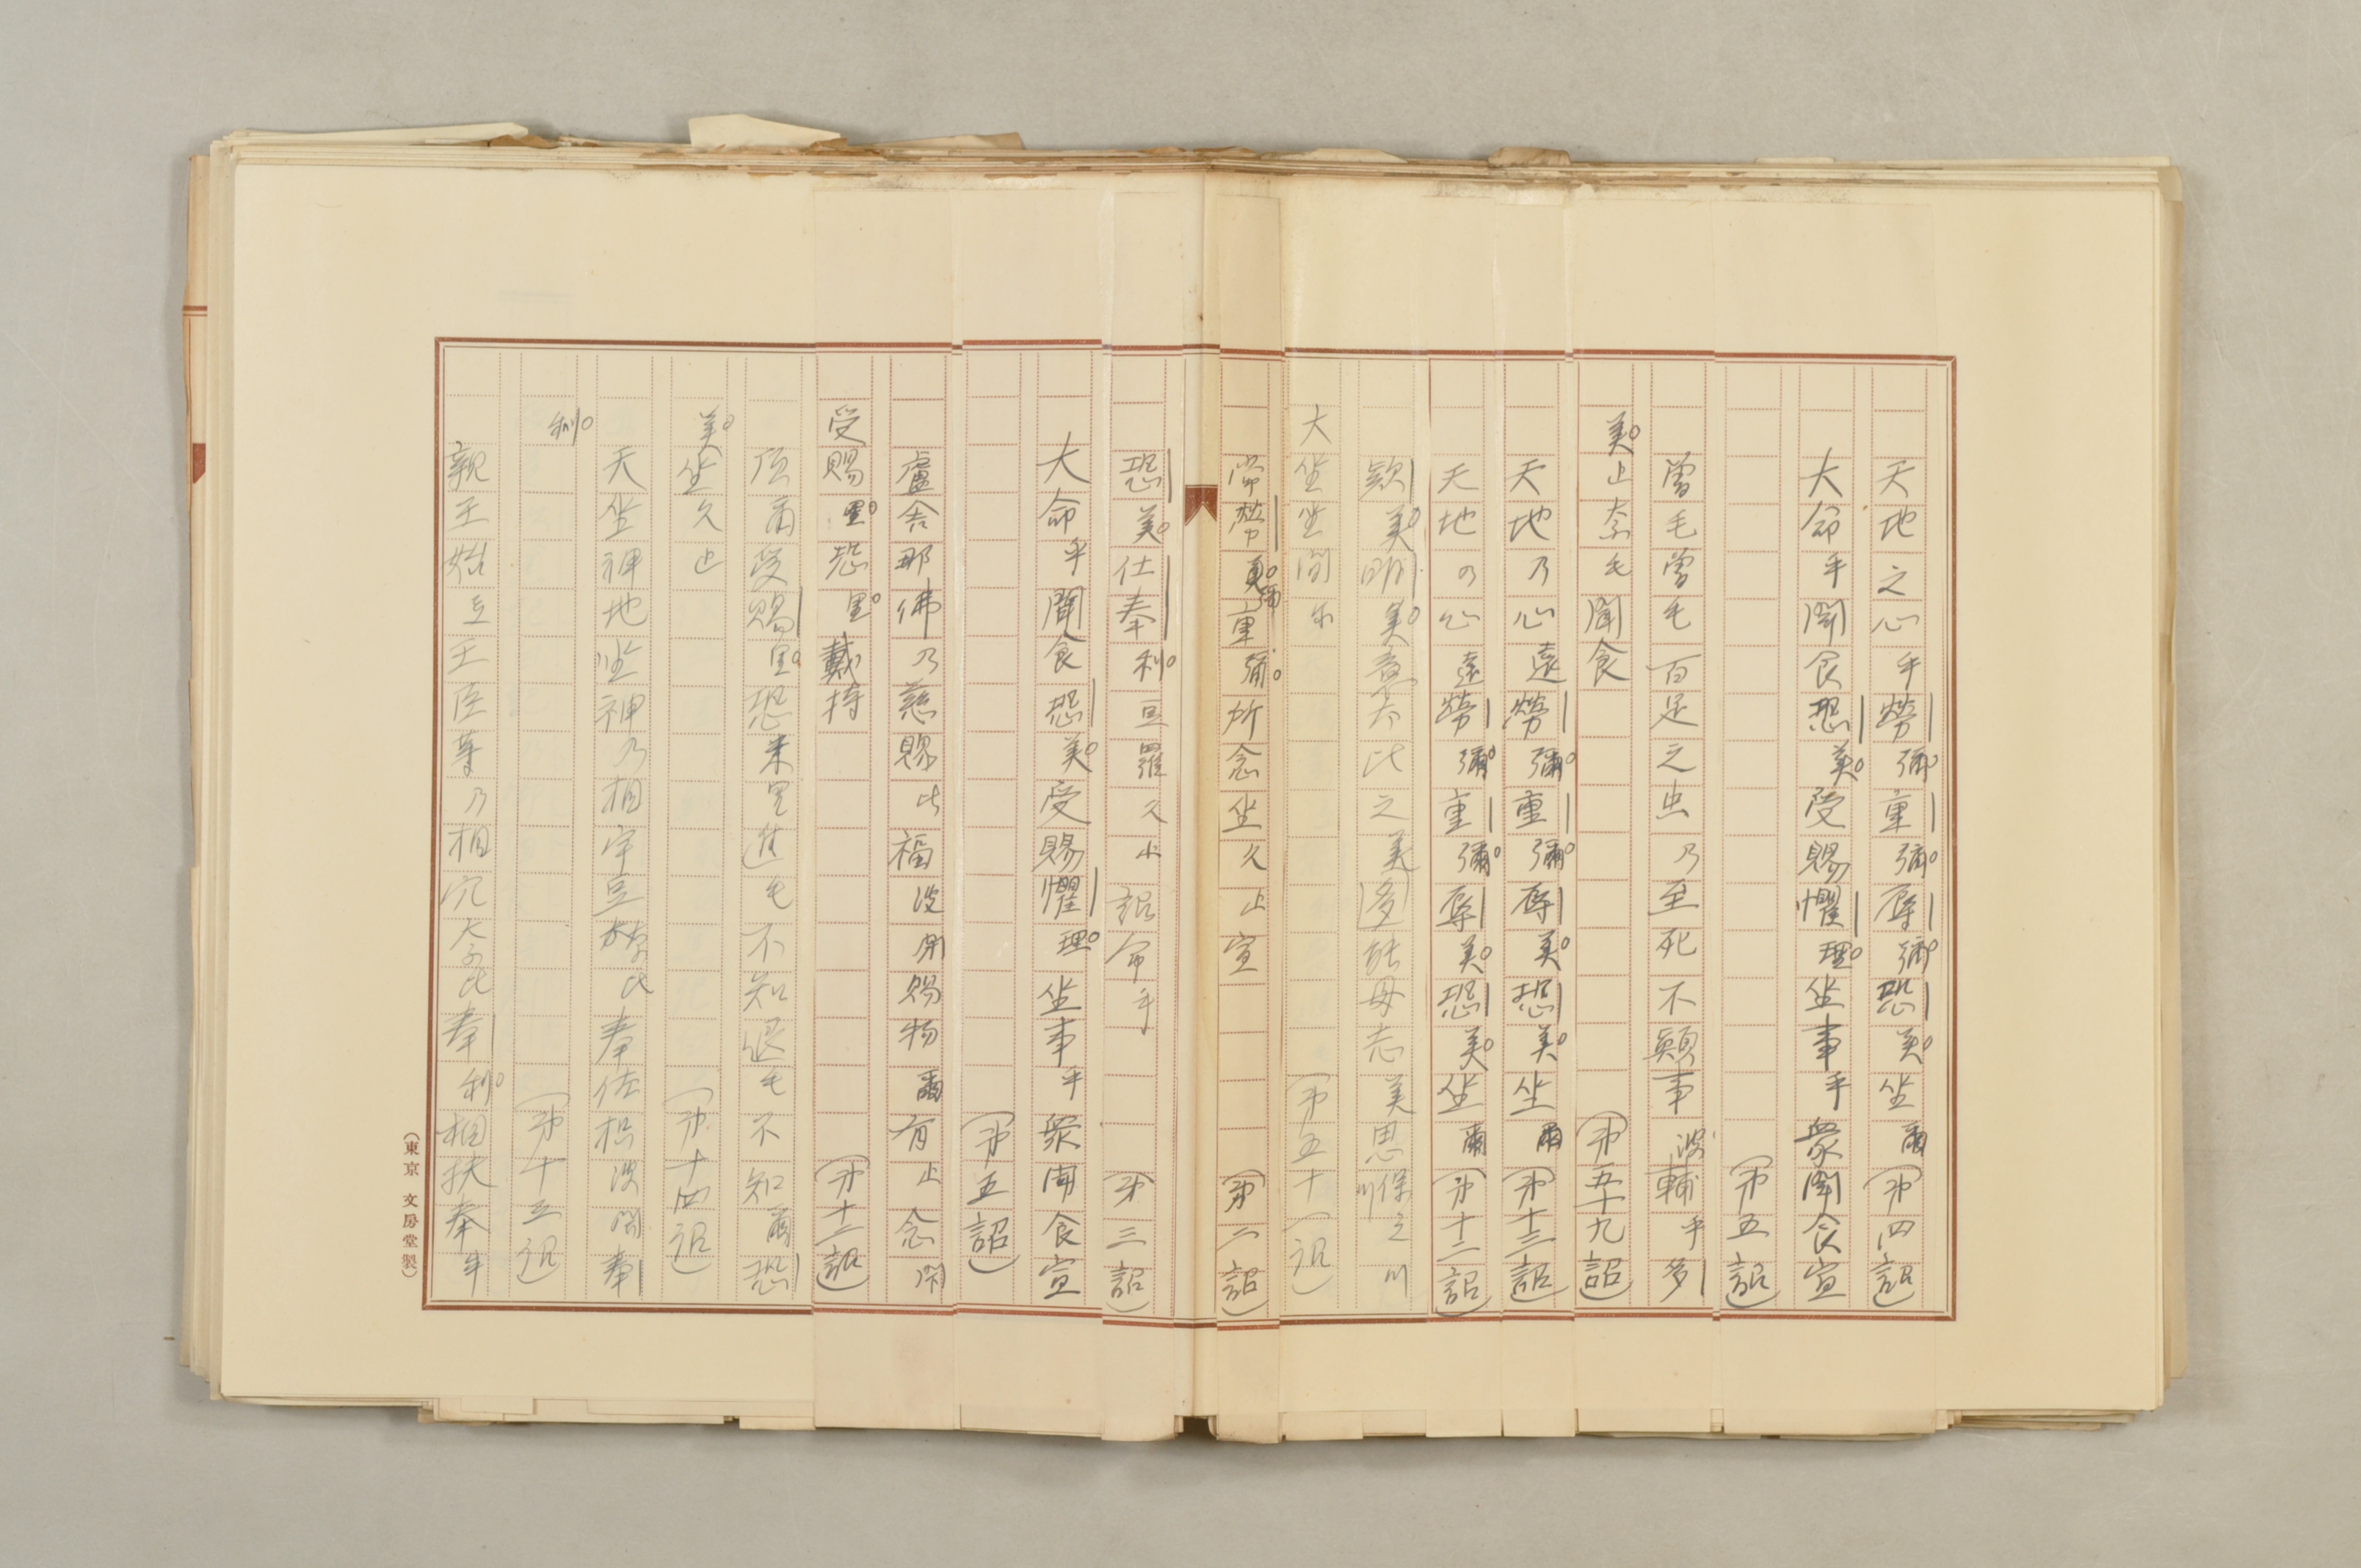 天地之心乎勞彌重彌辱彌恐美坐爾(第四詔)
大命乎聞食恐美受賜懼理坐事乎衆聞食宣
(第五詔)
曽毛曽毛百足之虫乃至死不顛事波輔乎多
美止奈毛聞食(第五十九詔)
天地乃心遠勞彌重彌辱美恐美坐爾(第十三詔)
天地乃心遠勞彌重彌辱美恐美坐爾(第十二詔)
歎美明美意太比之美多能母志美思保之川
大坐坐間尓(第五十一詔)
常勞美彌重彌所念坐久止宣(第二詔)
恐美仕奉利豆羅久止詔命乎(第三詔)
大命乎聞食恐美受賜懼理坐事乎衆聞食宣
(第五詔)
盧舎那佛乃慈賜比福波閇賜物爾有止念閇
受賜里恐里戴持(第十二詔)
頂爾受賜里恐末里進毛不知退毛不知爾恐
美坐久止(第十四詔)
天坐神地坐神乃相宇豆奈比奉佐枳波閇奉
利(第十三詔)
親王始豆王臣等乃相穴奈比奉利相扶奉牟
(東京 文房堂製)